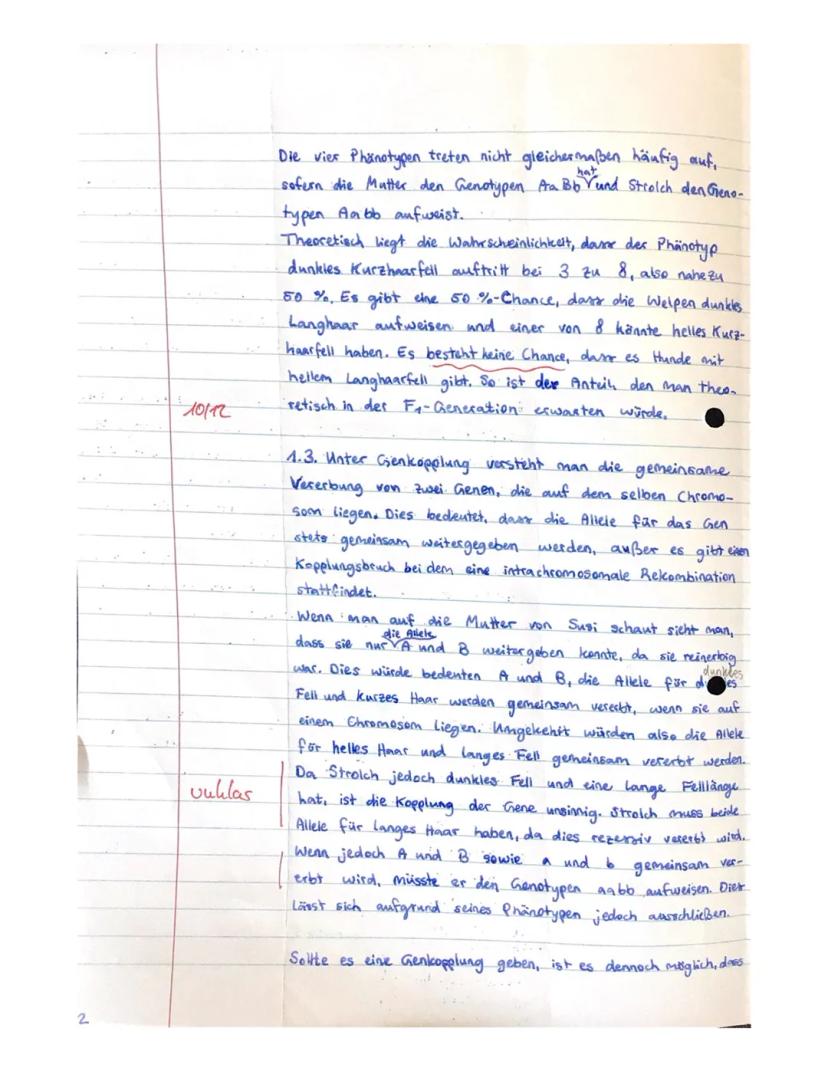 Die vier Phänotypen treten nicht gleichermaßen häufig auf,
hat
sofern die Mutter den Genotypen Aa Bb und Strolch den Geno-
typen Aabb aufweist.
Theoretisch liegt die Wahrscheinlichkeit, dass der Phänotyp
dunkles Kurzhaarfell auftritt bei 3 zu 8, also nahezu
50 %. Es gibt eine 50 %-Chance, dass die Welpen dunkles
Langhaar aufweisen und einer von 8 könnte helles Kurz-
haarfell haben. Es besteht keine Chance, dass es Hunde mit
hellem Langhaarfell gibt. So ist der Anteil, den man theo-
10/12 retisch in der F1-Generation erwarten würde.
1.3. Unter Genkopplung versteht man die gemeinsame
Vererbung von zwei Genen, die auf dem selben Chromo-
som liegen. Dies bedeutet, dass die Allele für das Gen
stets gemeinsam weitergegeben werden, außer es gibt einen
Kopplungsbruch bei dem eine intrachromosomale Rekombination
stattfindet.
Wenn man auf die Mutter von Susi schaut sieht man,
die Allele
dass sie nur A und B weitergeben konnte, da sie reinerbig
dunkles
war. Dies würde bedeuten A und B, die Allele für
Fell und kurzes Haar werden gemeinsam vererbt, wenn sie auf
einem Chromosom liegen. Umgekehrt würden also die Allele
für helles Haar und langes Fell gemeinsam vererbt werden.
Da Strolch jedoch dunkles Fell und eine lange Felllänge
unklar hat, ist die Kopplung der Gene unsinnig. Strolch muss beide
Allele für langes Haar haben, da dies rezessiv vererbt wird.
Wenn jedoch A und B sowie a und b gemeinsam ver-
erbt wird, müsste er den Genotypen aabb aufweisen. Dies
lässt sich aufgrund seines Phänotypen jedoch ausschließen.
Sollte es eine Genkopplung geben, ist es dennoch möglich, dass
2